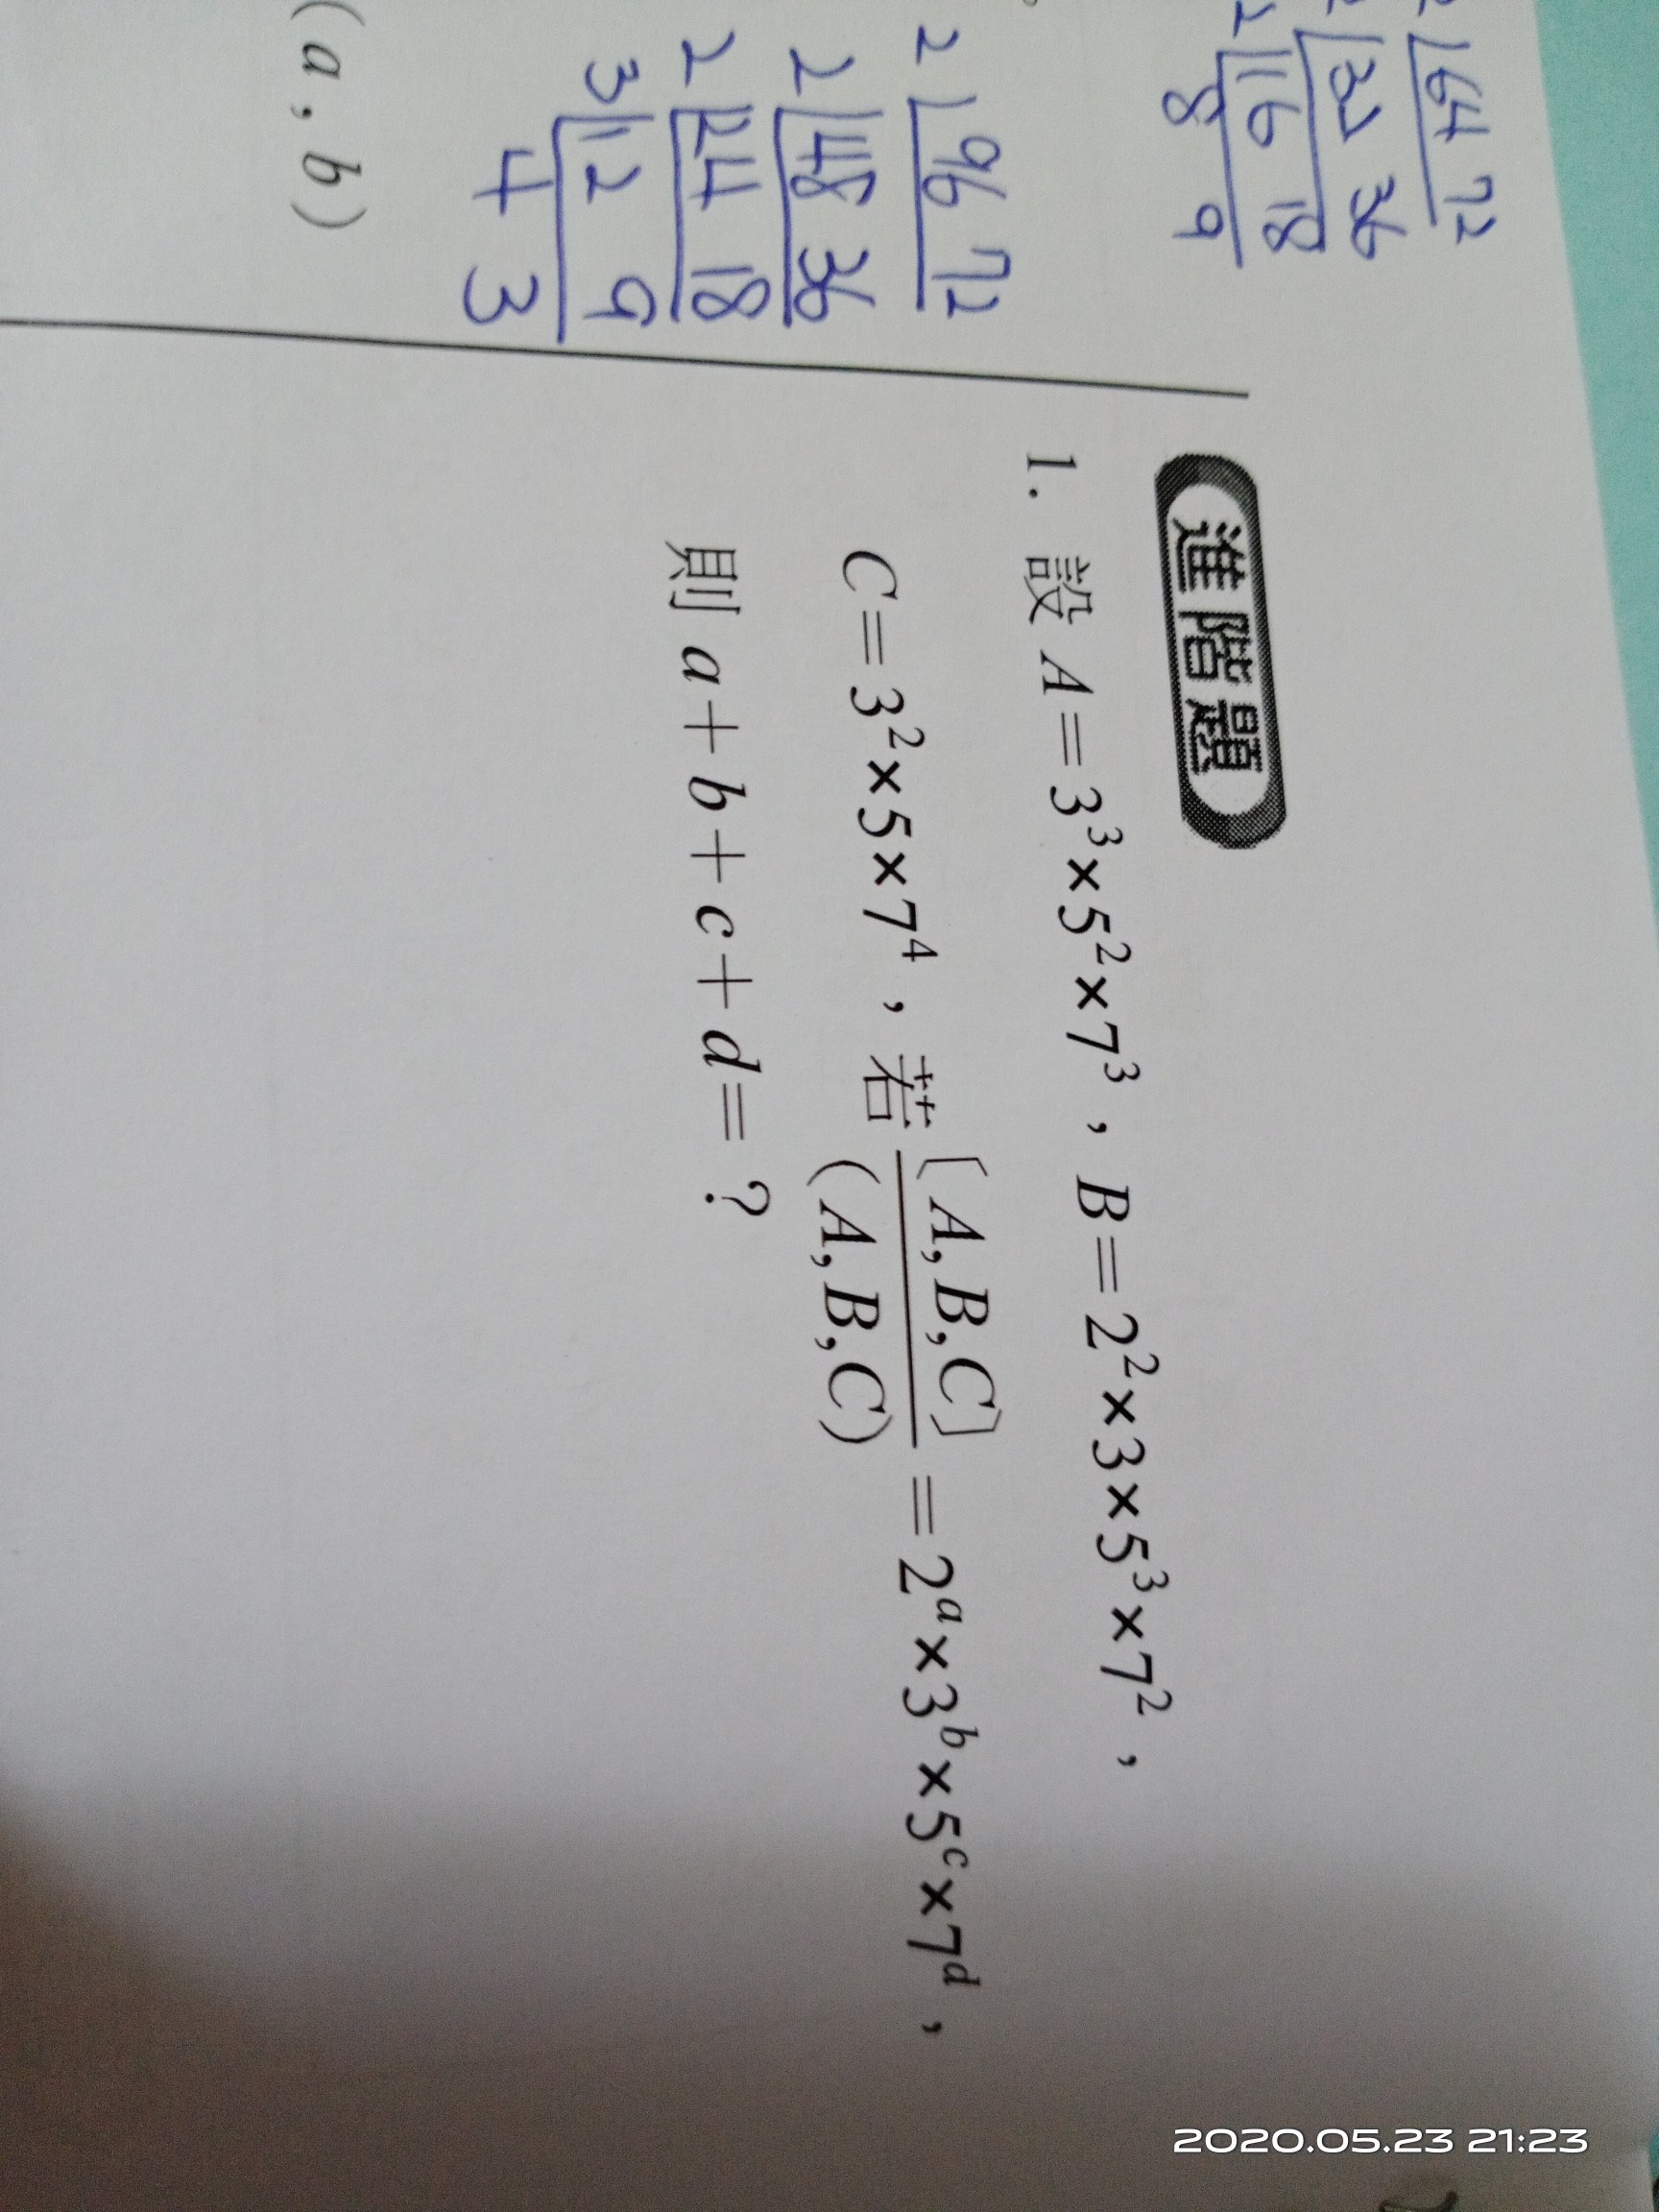 2 64 72
2 32 36
2 16 18
8 9
2 96 72
2 48 36
2 24 18
3 12 9
4 3
(a,b)
進階題
1. 設 A=3³×5²×7³,B=2²×3×5³×7²,
C=3²×5×7⁴,若 [A,B,C]/(A,B,C) =2ᵃ×3ᵇ×5ᶜ×7ᵈ,
則 a+b+c+d=?
2020.05.23 21:23